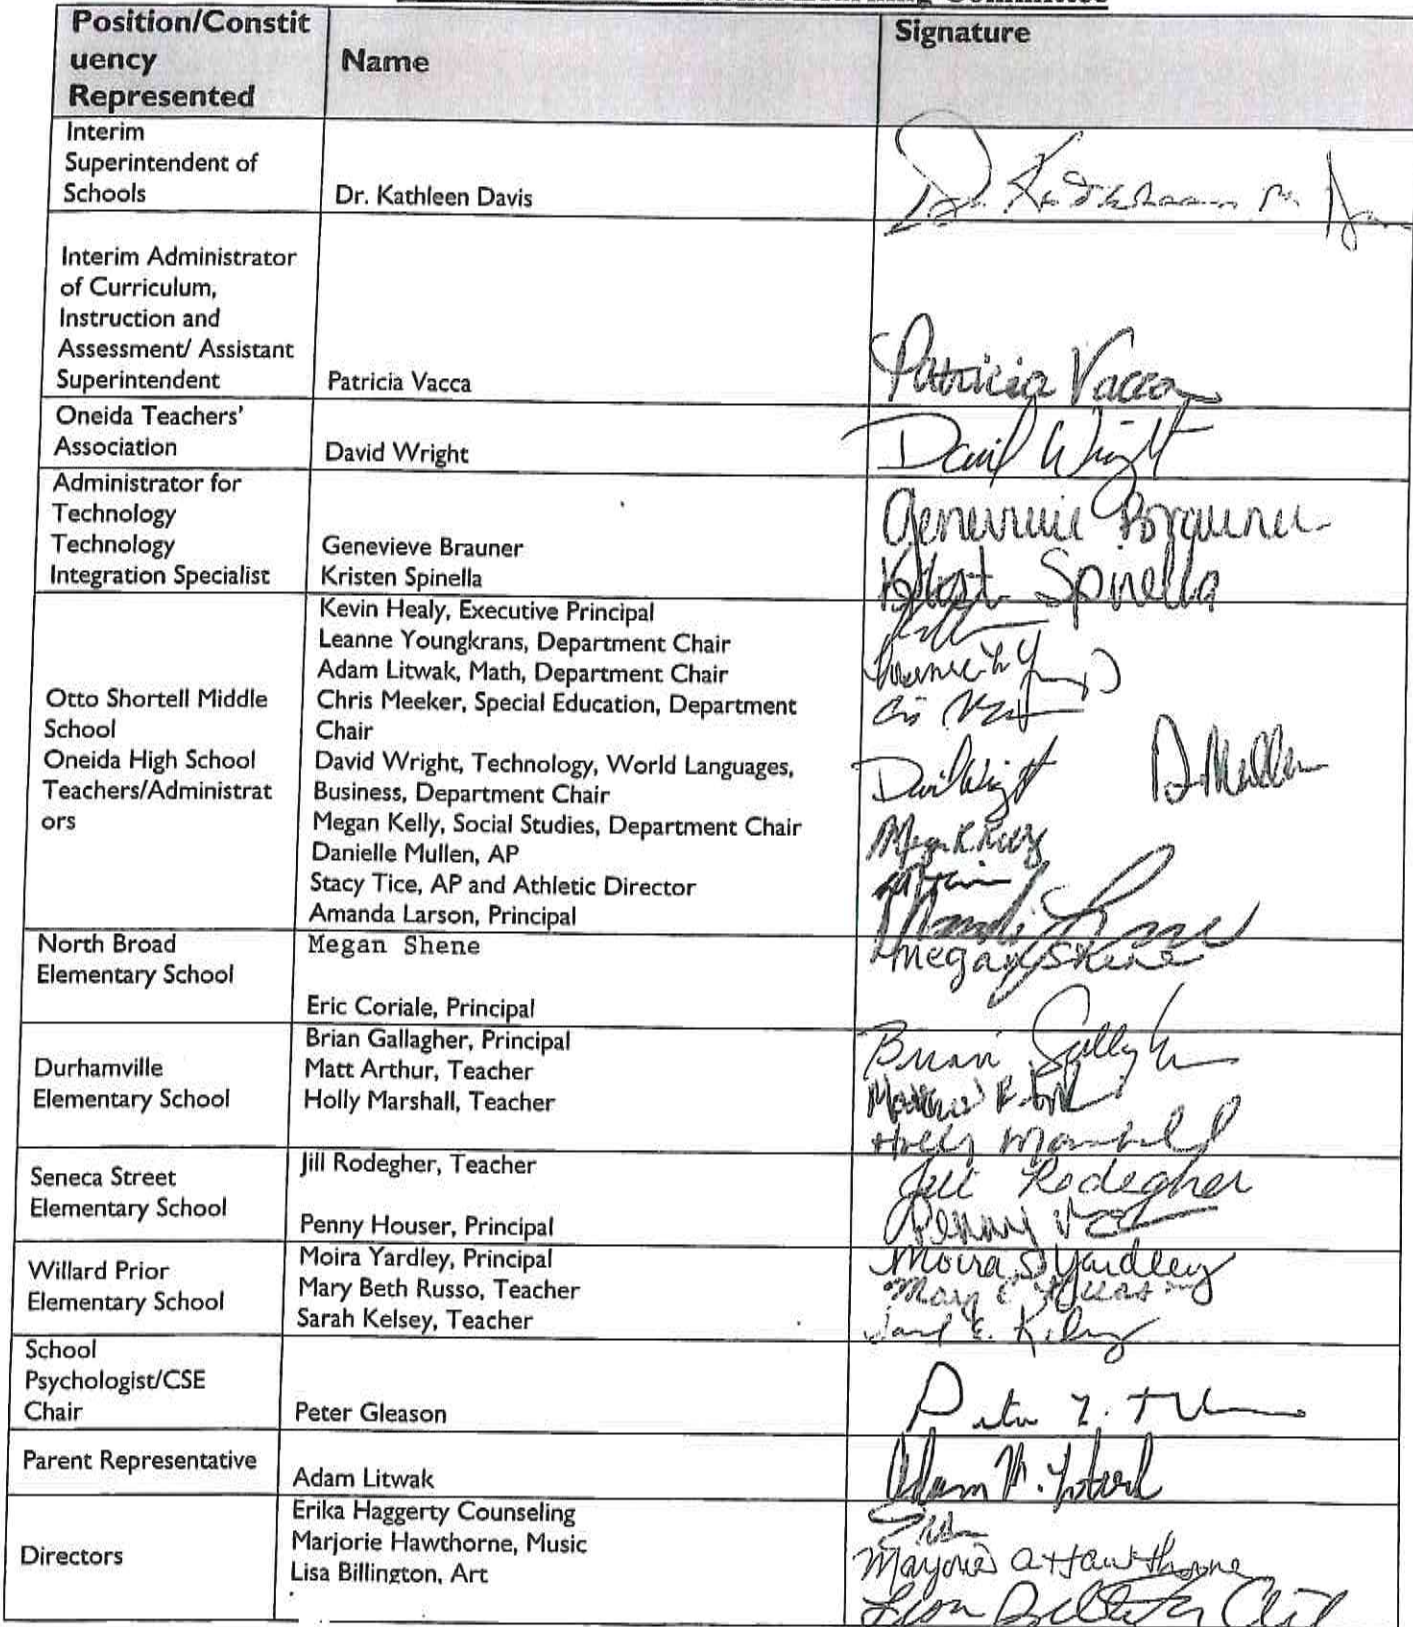 Learning Committee
Position/Constit
uency
Represented
Name
Signature
Interim
Superintendent of
Schools
Dr. Kathleen Davis
Dr. Kathleen M.
Interim Administrator
of Curriculum,
Instruction and
Assessment/ Assistant
Superintendent
Patricia Vacca
Patricia Vacca
Oneida Teachers'
Association
David Wright
David Wright
Administrator for
Technology
Technology
Integration Specialist
Genevieve Brauner
Kristen Spinella
Genevieve Brauner
Spinella
Otto Shortell Middle
School
Oneida High School
Teachers/Administrat
ors
Kevin Healy, Executive Principal
Leanne Youngkrans, Department Chair
Adam Litwak, Math, Department Chair
Chris Meeker, Special Education, Department
Chair
David Wright, Technology, World Languages,
Business, Department Chair
Megan Kelly, Social Studies, Department Chair
Danielle Mullen, AP
Stacy Tice, AP and Athletic Director
Amanda Larson, Principal
David Wright
D Mullen
North Broad
Elementary School
Megan Shene
Eric Coriale, Principal
Megan Shene
Durhamville
Elementary School
Brian Gallagher, Principal
Matt Arthur, Teacher
Holly Marshall, Teacher
Brian Gallagher
Holly Marshall
Seneca Street
Elementary School
Jill Rodegher, Teacher
Penny Houser, Principal
Jill Rodegher
Penny
Willard Prior
Elementary School
Moira Yardley, Principal
Mary Beth Russo, Teacher
Sarah Kelsey, Teacher
Moira S Yardley
School
Psychologist/CSE
Chair
Peter Gleason
Parent Representative
Adam Litwak
Directors
Erika Haggerty Counseling
Marjorie Hawthorne, Music
Lisa Billington, Art
Marjorie A Hawthorne